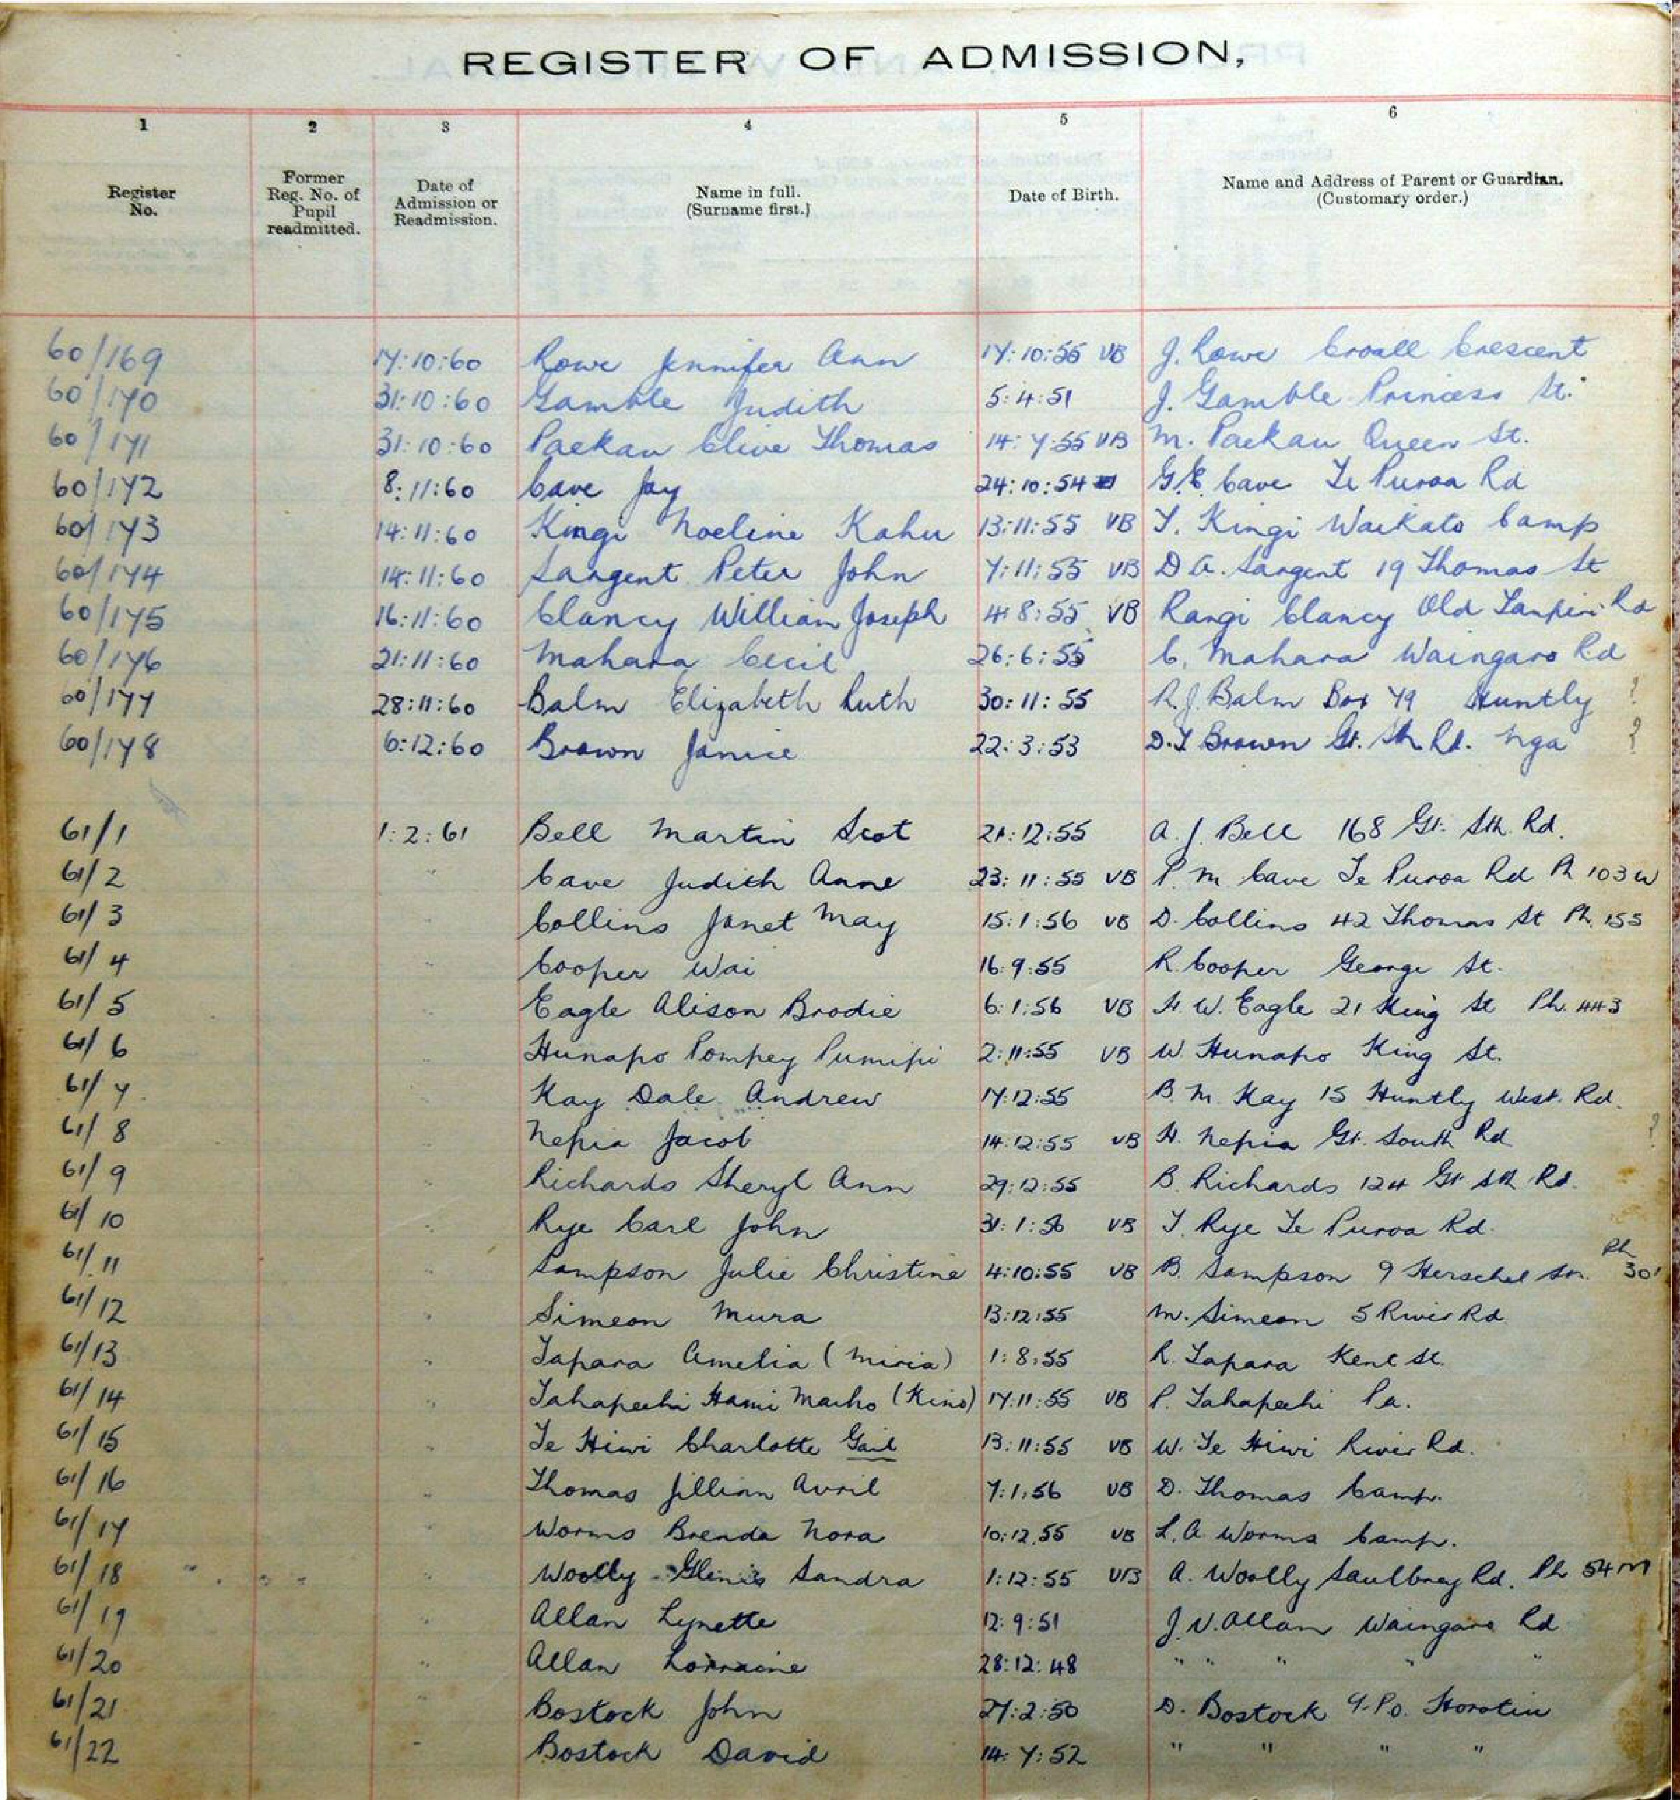 REGISTER OF ADMISSION,
1 2 3 4 5 6
Register No. Former Reg. No. of Pupil readmitted. Date of Admission or Readmission. Name in full. (Surname first.) Date of Birth. Name and Address of Parent or Guardian. (Customary order.)
60/169 17:10:60 Rowe Jennifer Ann 17:10:55 VB J. Rowe Croall Crescent
60/170 31:10:60 Gamble Judith 5:4:51 J. Gamble Princess St.
60/171 31:10:60 Paekau Clive Thomas 14:7:55 VB M. Paekau Queen St.
60/172 8:11:60 Cave Jay 24:10:54 G.E. Cave Te Puroa Rd
60/173 14:11:60 Kingi Noeline Kahu 13:11:55 VB T. Kingi Waikato Camp
60/174 14:11:60 Sargent Peter John 7:11:55 VB D A. Sargent 19 Thomas St
60/175 16:11:60 Clancy William Joseph 4:8:55 VB Rangi Clancy Old Taupiri Rd
60/176 21:11:60 Mahara Cecil 26:6:55 C. Mahara Waingaro Rd
60/177 28:11:60 Balm Elizabeth Ruth 30:11:55 R.J. Balm Box 79 Huntly ?
60/178 6:12:60 Brown Janice 22:3:53 D.T Brown Gt. Sth Rd. Nga ?
61/1 1:2:61 Bell Martin Scot 21:12:55 A.J. Bell 168 Gt. Sth. Rd.
61/2 " Cave Judith Anne 23:11:55 VB P. M Cave Te Puroa Rd Ph 103W
61/3 " Collins Janet May 15:1:56 VB D. Collins 42 Thomas St Ph. 155
61/4 " Cooper Wai 16:9:55 R. Cooper George St.
61/5 " Eagle Alison Brodie 6:1:56 VB W. Eagle 21 King St Ph. 443
61/6 " Hunapo Pompey Pumipi 2:11:55 VB W. Hunapo King St.
61/7 " Kay Dale Andrew 17:12:55 B. M. Kay 15 Huntly West. Rd.
61/8 " Nepia Jacob 14:12:55 VB H. Nepia Gt. South Rd ?
61/9 " Richards Sheryl Ann 29:12:55 B. Richards 124 Gt Sth Rd.
61/10 " Rye Carl John 31:1:56 VB T. Rye Te Puroa Rd.
61/11 " Sampson Julie Christine 4:10:55 VB B. Sampson 9 Herschel Ph 301
61/12 " Simeon Mura 13:12:55 M. Simeon 5 River Rd
61/13 " Tapara Amelia (Miria) 1:8:55 R. Tapara Kent St.
61/14 " Tahapeehi Hami Marho (Kino) 17:11:55 VB P. Tahapeehi Pa.
61/15 " Te Hiwi Charlotte Gail 13:11:55 VB W. Te Hiwi River Rd.
61/16 " Thomas Jillian Avril 7:1:56 VB D. Thomas Camp.
61/17 " Worms Brenda Nora 10:12.55 VB L.A Worms Camp.
61/18 " Woolly Glenis Sandra 1:12:55 VB A. Woolly Saulbrey Rd. Ph 54M
61/19 " Allan Lynette 12:9:51 J.V. Allan Waingaro Rd
61/20 " Allan Lorraine 28:12:48 " " " " "
61/21 " Bostock John 27:2:50 D. Bostock Horotiu
61/22 " Bostock David 14:7:52 " " " "